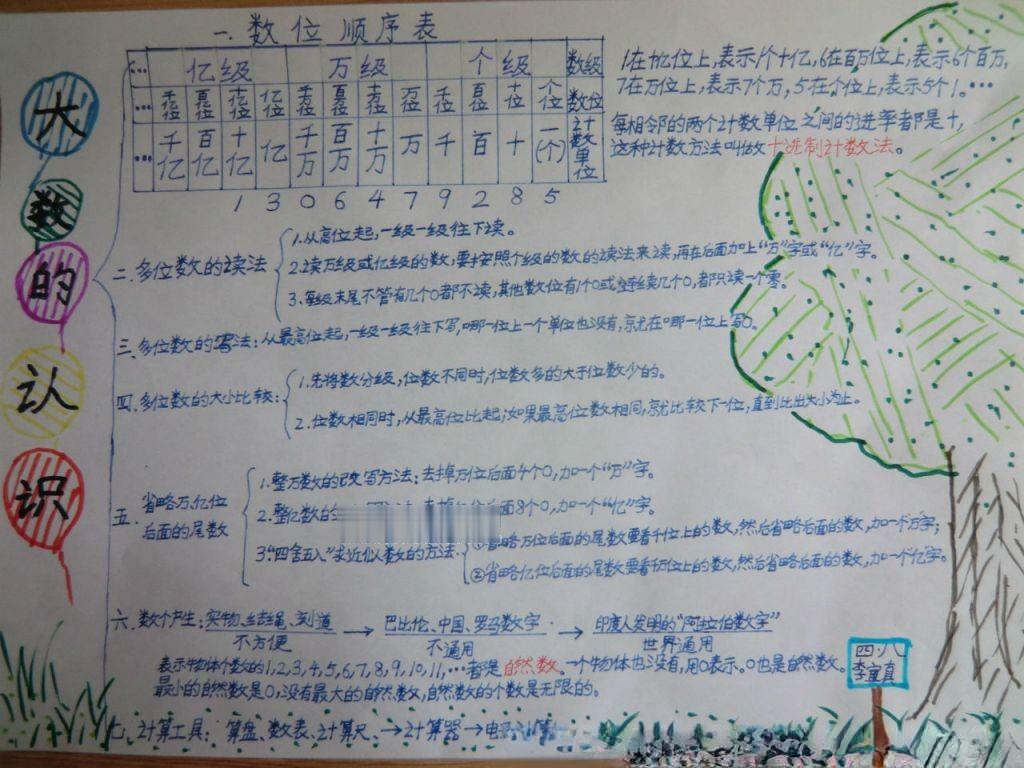 大的数认识
一.数位顺序表
… 亿级 万级 个级 数级
… 千亿位 百亿位 十亿位 亿位 千万位 百万位 十万位 万位 千位 百位 十位 个位 数位
… 千亿 百亿 十亿 亿 千万 百万 十万 万 千 百 十 一(个) 计数单位
1 3 0 6 4 7 9 2 8 5
1在十亿位上,表示1个十亿,6在百万位上,表示6个百万,
7在万位上,表示7个万,5在个位上,表示5个1。…
每相邻的两个计数单位之间的进率都是十,
这种计数方法叫做十进制计数法。
二.多位数的读法
1.从高位起,一级一级往下读。
2.读万级或亿级的数,要按照个级的数的读法来读,再在后面加上“万”字或“亿”字。
3.每级末尾不管有几个0都不读,其他数位有1个0或连续几个0,都只读一个零。
三、多位数的写法:从最高位起,一级一级往下写,哪一位上一个单位也没有,就在哪一位上写0。
四.多位数的大小比较:
1.先将数分级,位数不同时,位数多的大于位数少的。
2.位数相同时,从最高位比起;如果最高位数相同,就比较下一位,直到比出大小为止。
五.省略万、亿位
后面的尾数
1.整万数的改写方法:去掉万位后面4个0,加一个“万”字。
2.整亿数的 后面8个0,加一个“亿”字。
3.“四舍五入”求近似数的方法.
①省略万位后面的尾数要看千位上的数,然后省略后面的数,加一个万字;
②省略亿位后面的尾数要看千万位上的数,然后省略后面的数,加一个亿字。
六.数个产生:实物、结绳、刻道 → 巴比伦、中国、罗马数字. → 印度人发明的“阿拉伯数字”
不方便 不通用 世界通用
表示物体个数的1,2,3,4,5,6,7,8,9,10,11,…都是自然数.一个物体也没有,用0表示。0也是自然数。
最小的自然数是0,没有最大的自然数,自然数的个数是无限的。
四.八
李宜真
七、计算工具:算盘、数表、计算尺、→计算器→电 计算